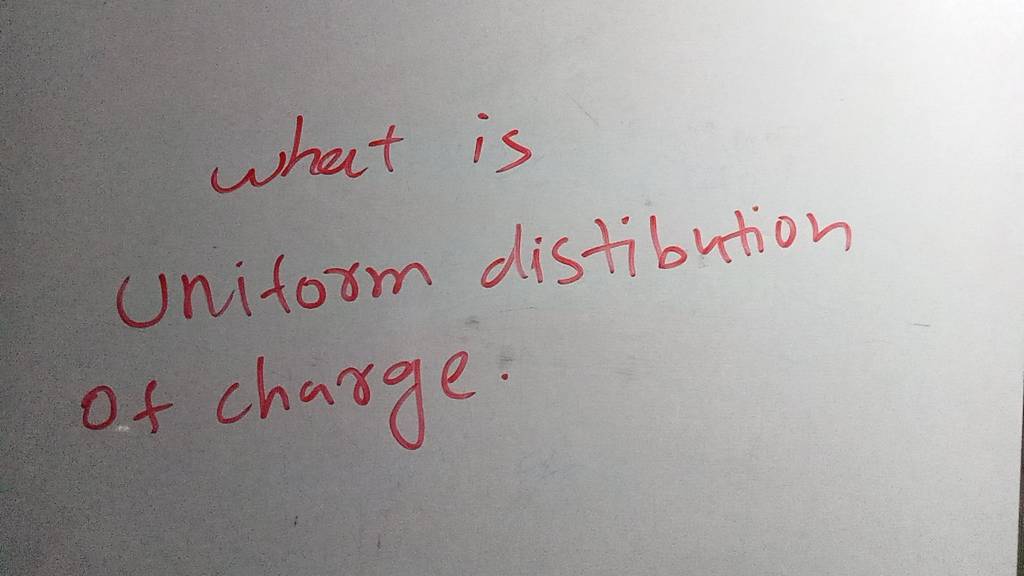 what is
uniform distibution
of charge.